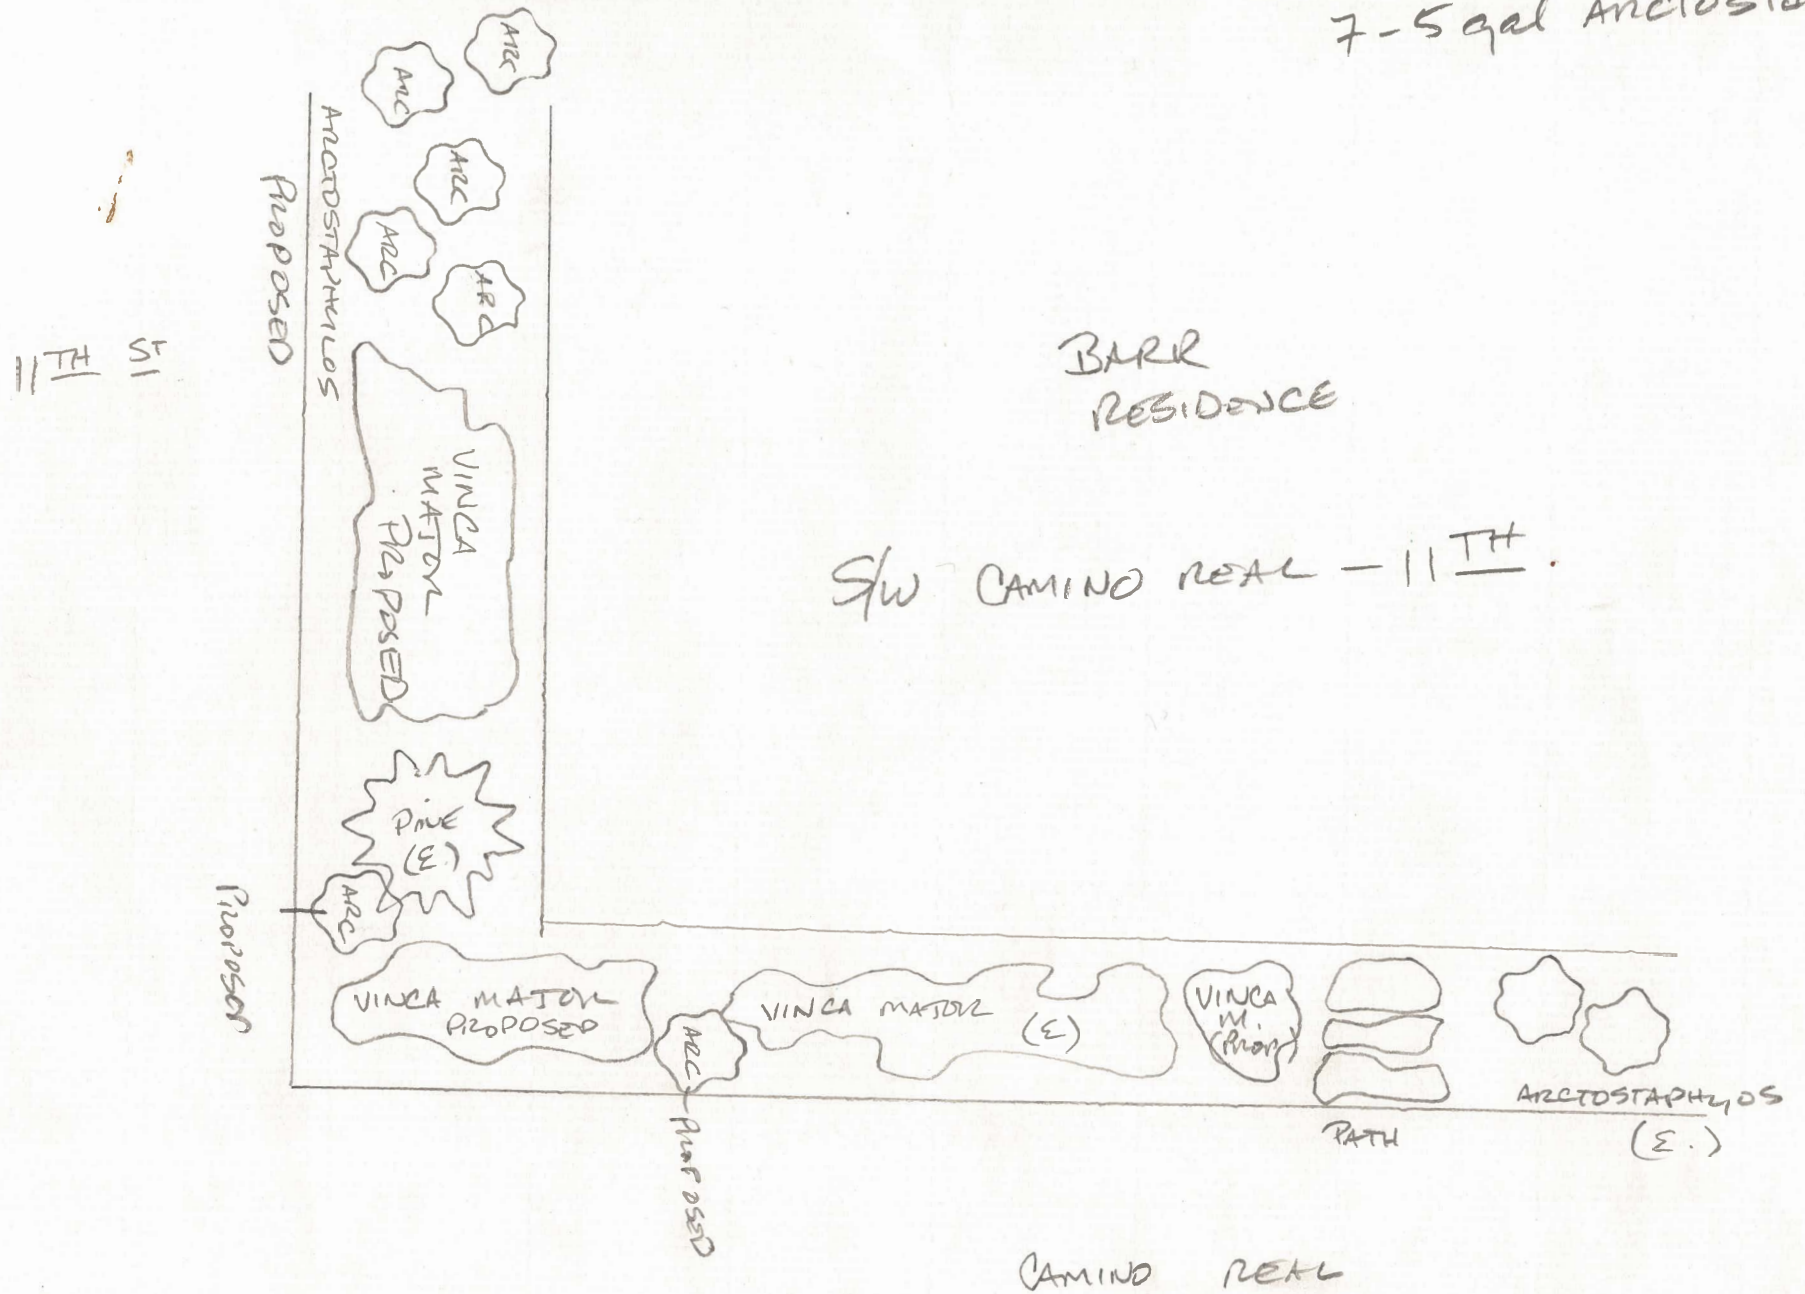 7-5 gal
ARC
ARC
ARC
ARC
ARC
ARCTOSTAPHYLOS
PROPOSED
11TH ST
BARR
RESIDENCE
S/W CAMINO REAL - 11TH.
VINCA
MAJOR
PROPOSED
PINE
(E.)
ARC
PROPOSED
VINCA MAJOR
PROPOSED
ARC
PROPOSED
VINCA MAJOR
(E)
VINCA
M.
(PROP)
PATH
ARCTOSTAPHYLOS
(E.)
CAMINO REAL